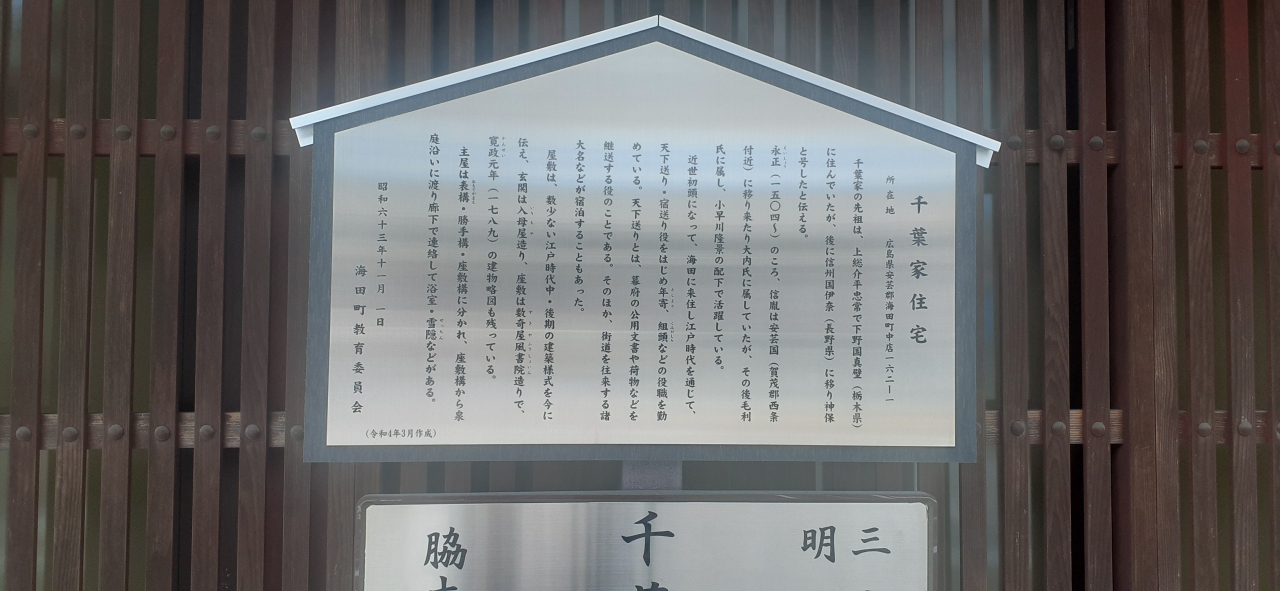 千葉家住宅
所在地　広島県安芸郡海田町中店一六二ー一
千葉家の先祖は、上総介平忠常で下野国真壁（栃木県）
に住んでいたが、後に信州国伊奈（長野県）に移り神保
と号したと伝える。
永正（一五〇四〜）のころ、信胤は安芸国（賀茂郡西条
付近）に移り来たり大内氏に属していたが、その後毛利
氏に属し、小早川隆景の配下で活躍している。
近世初頭になって、海田に来住し江戸時代を通じて、
天下送り・宿送り役をはじめ年寄、組頭などの役職を勤
めている。天下送りとは、幕府の公用文書や荷物などを
継送する役のことである。そのほか、街道を往来する諸
大名などが宿泊することもあった。
屋敷は、数少ない江戸時代中・後期の建築様式を今に
伝え、玄関は入母屋造り、座敷は数奇屋風書院造りで、
寛政元年（一七八九）の建物略図も残っている。
主屋は表構・勝手構・座敷構に分かれ、座敷構から泉
庭沿いに渡り廊下で連絡して浴室・雪隠などがある。
昭和六十三年十一月一日
海田町教育委員会
（令和4年3月作成）
三
明
千
脇